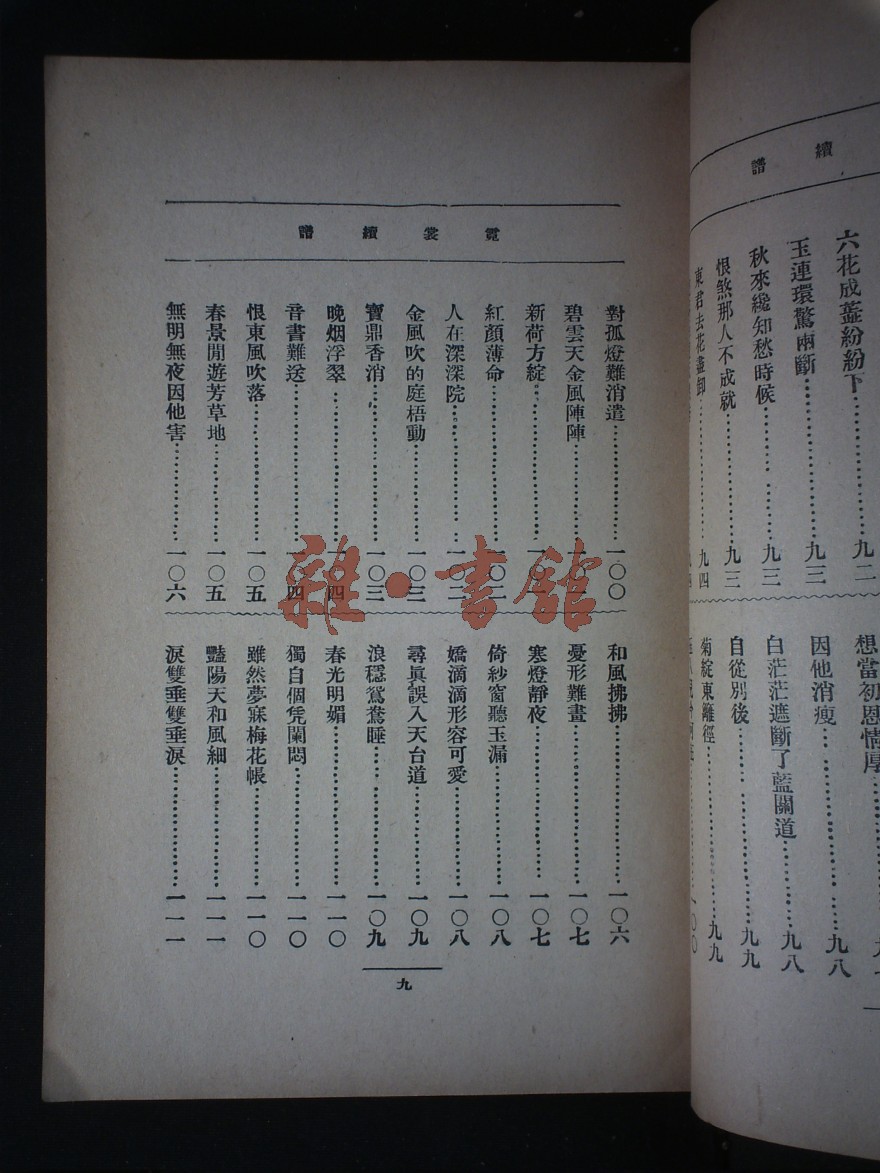 續譜
六花成蓋紛紛下……九二
玉連環驚兩斷……九三
秋來纔知愁時候……九三
恨煞那人不成就……九三
東君去花盡卸……九四
想當初恩情厚……
因他消瘦……九八
白茫茫遮斷了藍關道……九八
自從別後……九九
菊綻東籬徑……九九
一〇〇
霓裳續譜
對孤燈難消遣……一〇〇
碧雲天金風陣陣……一〇一
新荷方綻……一〇一
紅顏薄命……一〇二
人在深深院……一〇二
金風吹的庭梧動……一〇三
寶鼎香消……一〇三
晚烟浮翠……一〇四
音書難送……一〇四
恨東風吹落……一〇五
春景閒遊芳草地……一〇五
無明無夜因他害……一〇六
和風拂拂……一〇六
憂形難畫……一〇七
寒燈靜夜……一〇七
倚紗窗聽玉漏……一〇八
嬌滴滴形容可愛……一〇八
尋眞誤入天台道……一〇九
浪穩鴛鴦睡……一〇九
春光明媚……一一〇
獨自個凭闌悶……一一〇
雖然夢寐梅花帳……一一〇
豔陽天和風細……一一一
淚雙垂雙垂淚……一一一
九
雜·書館